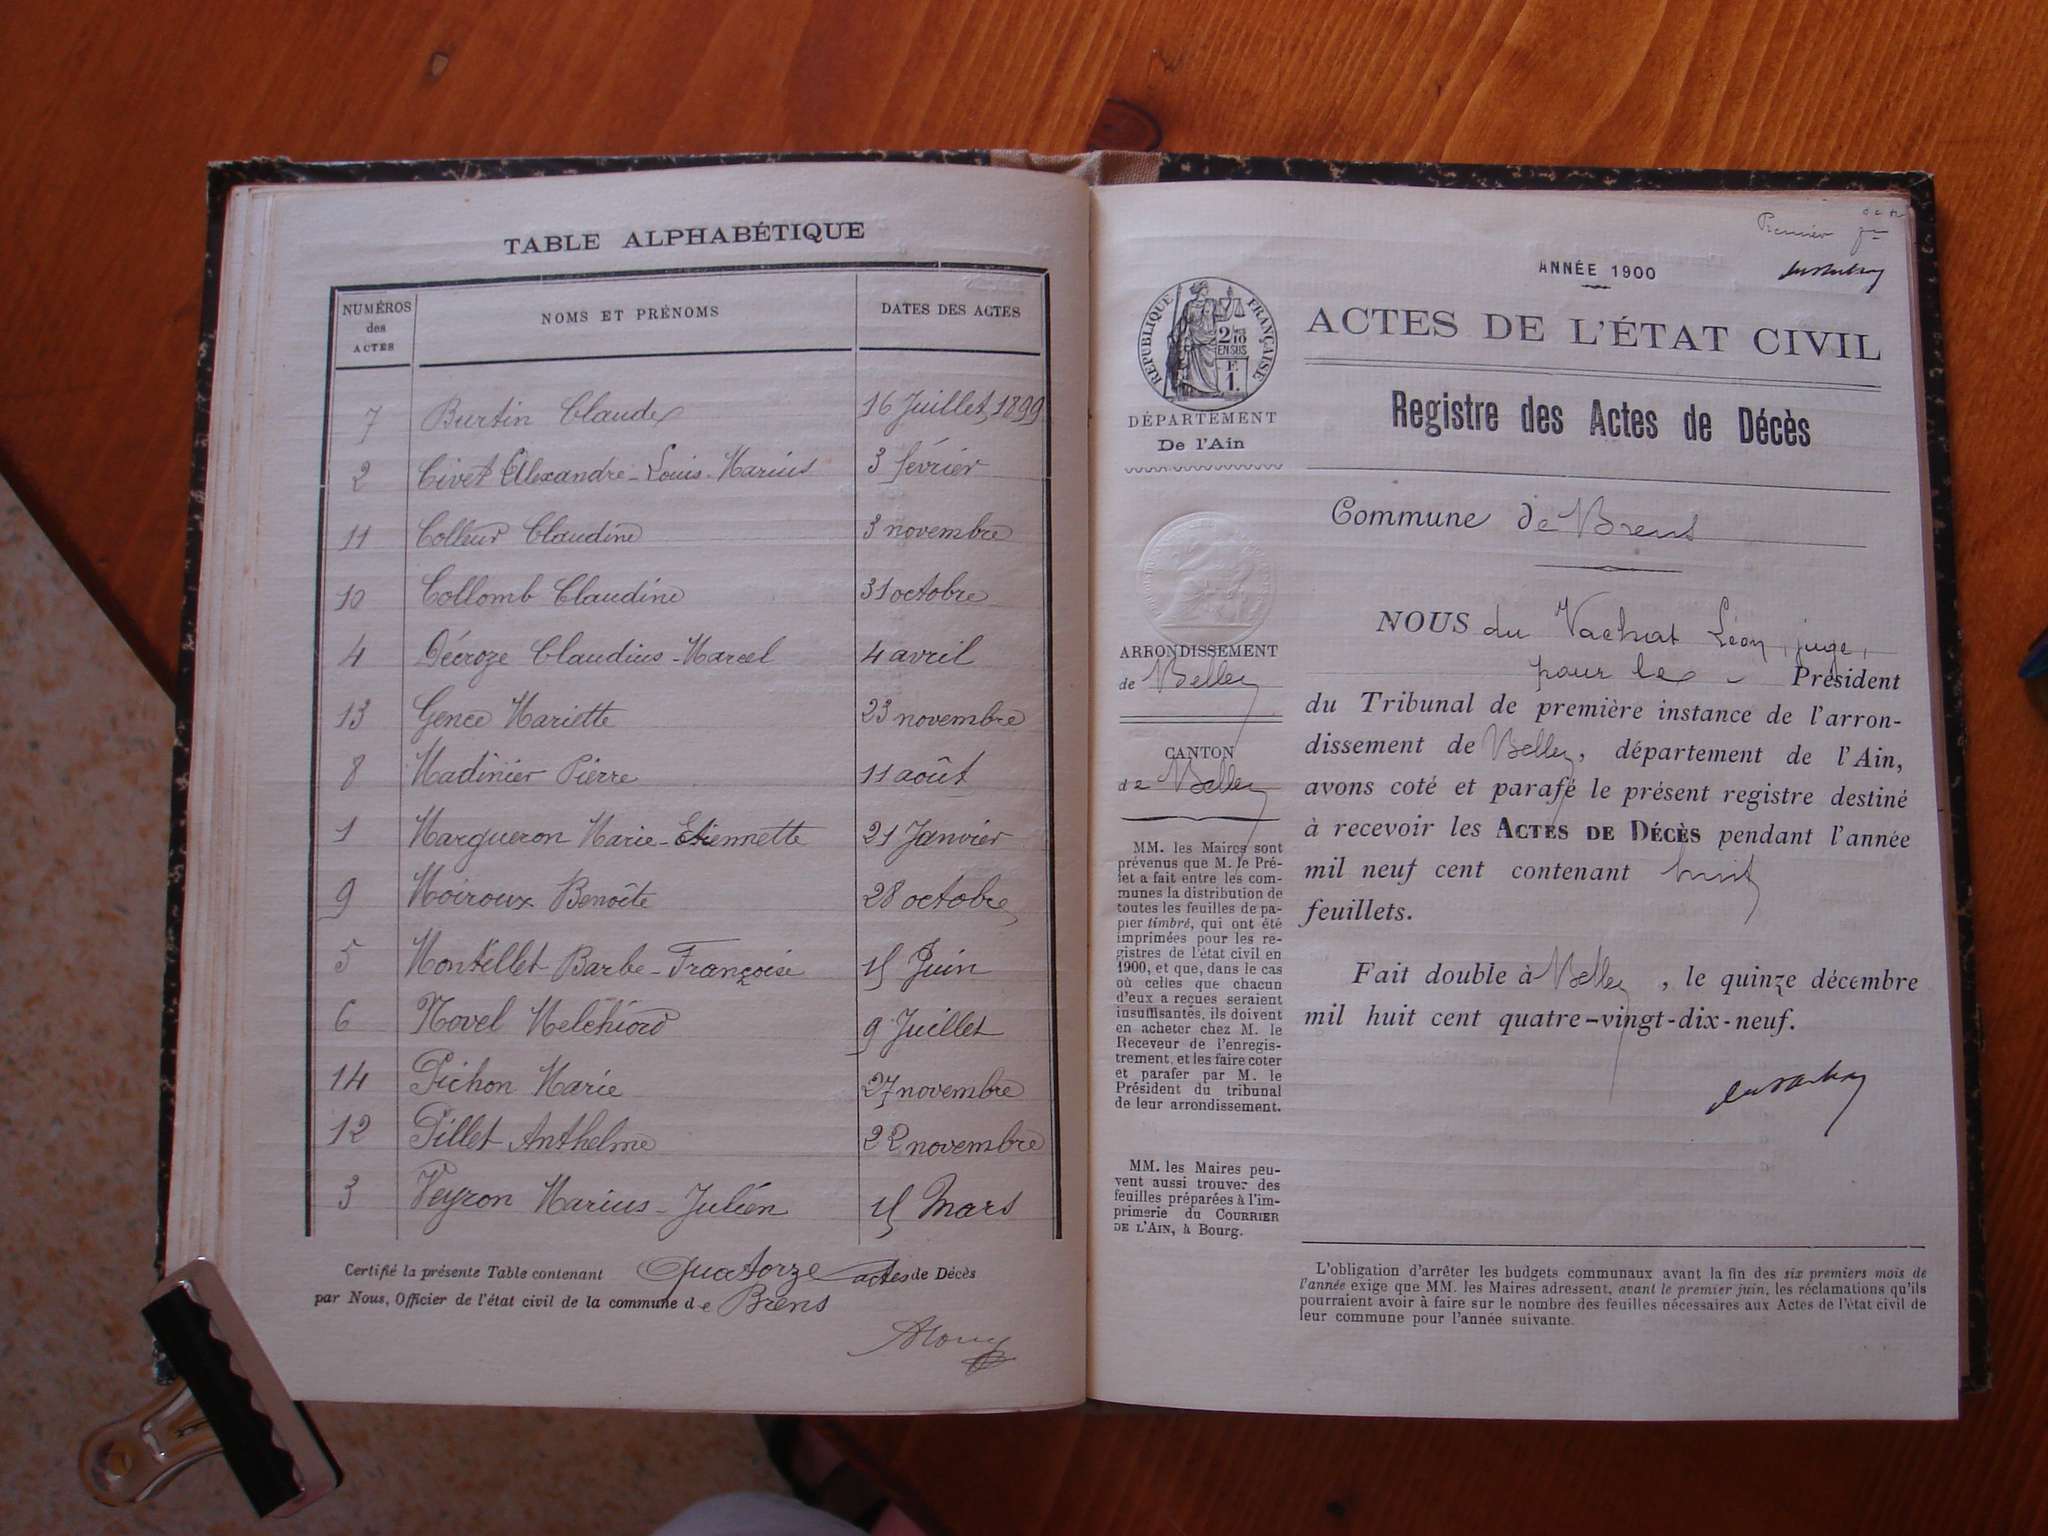 TABLE ALPHABÉTIQUE
NUMÉROS des ACTES NOMS ET PRÉNOMS DATES DES ACTES
7 Burtin Claude 16 Juillet 1899
2 Civet Alexandre-Louis-Marius 3 février
11 Colleur Claudine 3 novembre
10 Collomb Claudine 31 octobre
4 Décroze Claudius-Marcel 4 avril
13 Gence Mariette 23 novembre
8 Madinier Pierre 11 août
1 Margueron Marie-Etiennette 21 Janvier
9 Moiroux Benoîte 28 octobre
5 Montillet Barbe-Françoise 15 Juin
6 Novel Melchiord 9 Juillet
14 Pichon Marie 27 novembre
12 Pillet Anthelme 22 novembre
3 Veyron Marius-Julien 15 Mars
Certifié la présente Table contenant Quatorze actes de Décès
par Nous, Officier de l'état civil de la commune de Brens
Premier
ANNÉE 1900
RÉPUBLIQUE FRANÇAISE
2/10 EN SUS
F 1.
DÉPARTEMENT
De l'Ain
ARRONDISSEMENT
de Belley
CANTON
de Belley
MM. les Maires sont
prévenus que M. le Pré-
fet a fait entre les com-
munes la distribution de
toutes les feuilles de pa-
pier timbré, qui ont été
imprimées pour les re-
gistres de l'état civil en
1900, et que, dans le cas
où celles que chacun
d'eux a reçues seraient
insuffisantes, ils doivent
en acheter chez M. le
Receveur de l'enregis-
trement, et les faire coter
et parafer par M. le
Président du tribunal
de leur arrondissement.
MM. les Maires peu-
vent aussi trouver des
feuilles préparées à l'im-
primerie du COURRIER
DE L'AIN, à Bourg.
ACTES DE L'ÉTAT CIVIL
Registre des Actes de Décès
Commune de Brens
NOUS du Vachat Léon, juge,
pour le Président
du Tribunal de première instance de l'arron-
dissement de Belley, département de l'Ain,
avons coté et parafé le présent registre destiné
à recevoir les ACTES DE DÉCÈS pendant l'année
mil neuf cent contenant huit
feuillets.
Fait double à Belley, le quinze décembre
mil huit cent quatre-vingt-dix-neuf.
L'obligation d'arrêter les budgets communaux avant la fin des six premiers mois de
l'année exige que MM. les Maires adressent, avant le premier juin, les réclamations qu'ils
pourraient avoir à faire sur le nombre des feuilles nécessaires aux Actes de l'état civil de
leur commune pour l'année suivante.